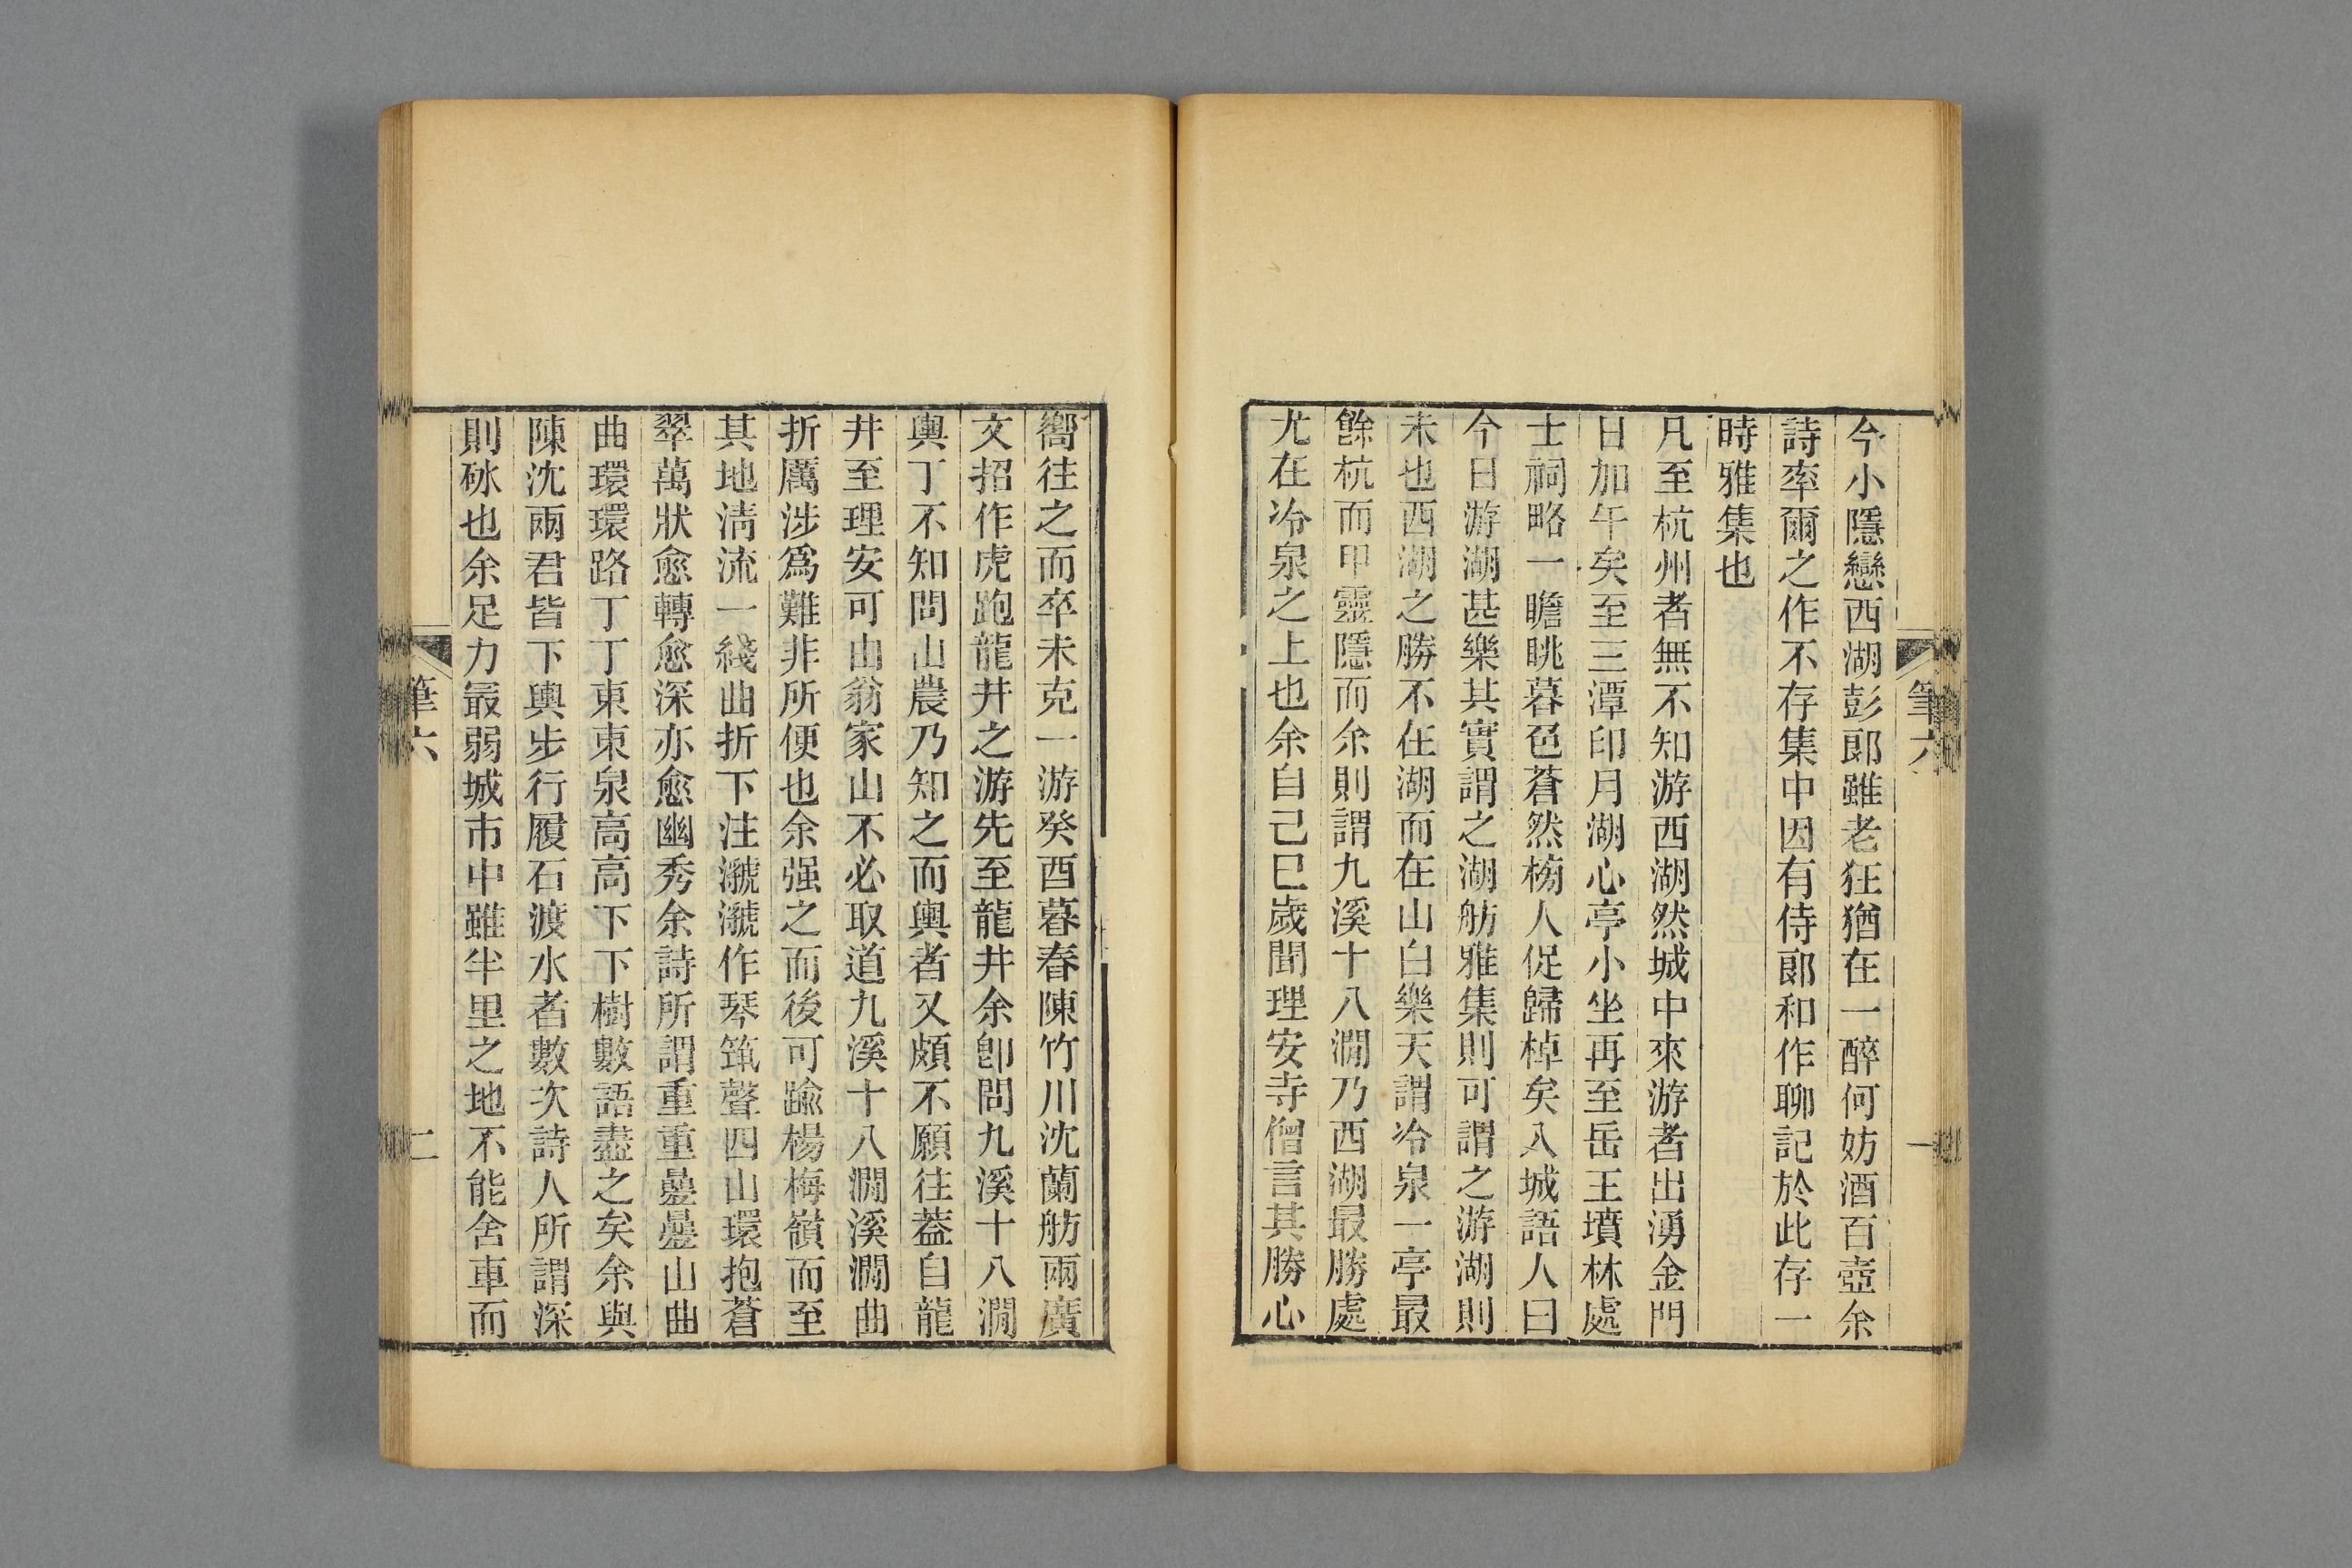 筆六
一
今小隱戀西湖彭郞雖老狂猶在一醉何妨酒百壺余
詩率爾之作不存集中因有侍郞和作聊記於此存一
時雅集也
凡至杭州者無不知游西湖然城中來游者出湧金門
日加午矣至三潭印月湖心亭小坐再至岳王墳林處
士祠略一瞻眺暮色蒼然榜人促歸棹矣入城語人曰
今日游湖甚樂其實謂之湖舫雅集則可謂之游湖則
未也西湖之勝不在湖而在山白樂天謂冷泉一亭最
餘杭而甲靈隱而余則謂九溪十八澗乃西湖最勝處
尤在冷泉之上也余自己巳歲聞理安寺僧言其勝心
嚮往之而卒未克一游癸酉暮春陳竹川沈蘭舫兩廣
文招作虎跑龍井之游先至龍井余卽問九溪十八澗
輿丁不知問山農乃知之而輿者又頗不願往葢自龍
井至理安可由翁家山不必取道九溪十八澗溪澗曲
折厲涉爲難非所便也余强之而後可踰楊梅嶺而至
其地淸流一綫曲折下注㶁㶁作琴筑聲四山環抱蒼
翠萬狀愈轉愈深亦愈幽秀余詩所謂重重疊疊山曲
曲環環路丁丁東東泉高高下下樹數語盡之矣余與
陳沈兩君皆下輿步行履石渡水者數次詩人所謂深
則砅也余足力最弱城市中雖半里之地不能舍車而
筆六
二